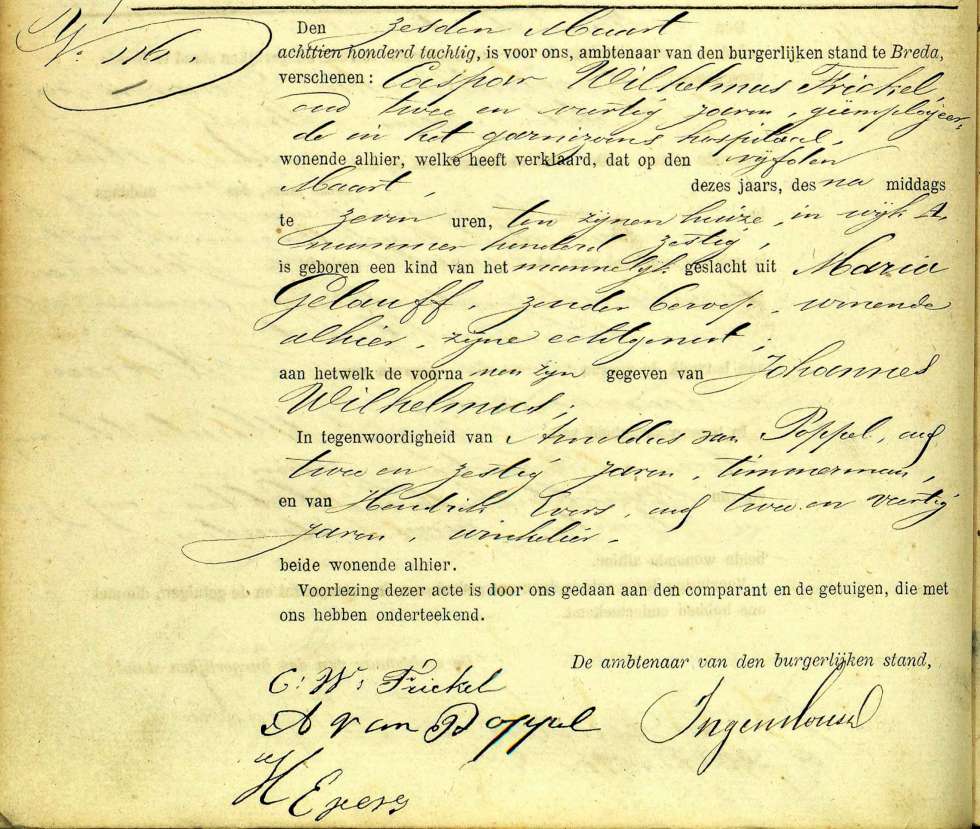 No. 116.
Den zesden Maart
achttien honderd tachtig, is voor ons, ambtenaar van den burgerlijken stand te Breda,
verschenen: Caspar Wilhelmus Frickel,
oud twee en veertig jaren, geëmployeer-
de in het garnizoens hospitaal,
wonende alhier, welke heeft verklaard, dat op den vijfden
Maart, dezes jaars, des na middags
te zeven uren, ten zijnen huize, in wijk A,
nummer honderd zestig,
is geboren een kind van het mannelijk geslacht uit Maria
Gelauff, zonder beroep, wonende
alhier, zijne echtgenoot;
aan hetwelk de voornamen zijn gegeven van Johannes
Wilhelmus;
In tegenwoordigheid van Arnoldus van Poppel, oud
twee en zestig jaren, timmerman,
en van Hendrik Evers, oud twee en veertig
jaren, winkelier,
beide wonende alhier.
Voorlezing dezer acte is door ons gedaan aan den comparant en de getuigen, die met
ons hebben onderteekend.
De ambtenaar van den burgerlijken stand,
C: W: Frickel
A van Poppel Ingenhousz
H Evers